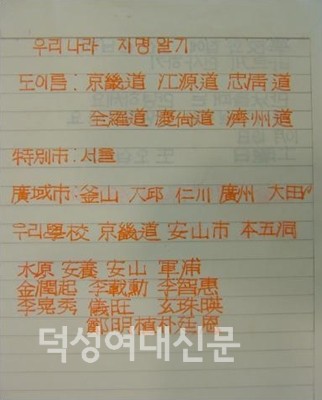 우리나라 지명 알기
도이름 : 京畿道 江源道 忠淸道
全羅道 慶尙道 濟州道
特別市 : 서울
廣域市 : 釜山 大邱 仁川 廣州 大田
우리學校 京畿道 安山市 本五洞
水原 安養 安山 軍浦
金潤起 李載勳 李智惠
李晃秀 儀旺 玄珠暎
鄭明植 朴廷恩
덕성여대신문